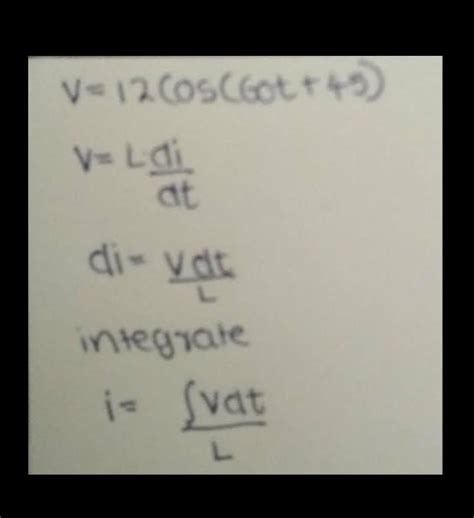 V=12Cos(60t+45)
V= L di/dt
di= Vdt/L
integrate
i= ∫Vdt/L